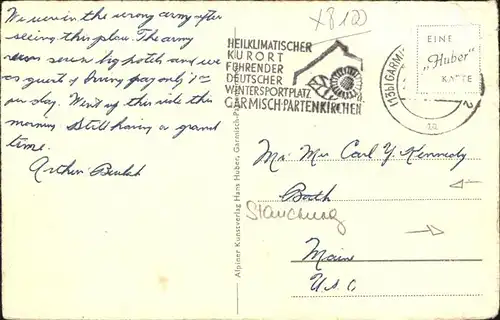 We were in the wrong army after
seeing this place. The army
runs seven big hotels and we
as guests of Irving pay only 1.00
per day. Went up this ride this
morning. Still having a grand
time.
Arthur Beulah
x8100
HEILKLIMATISCHER
KURORT
FÜHRENDER
DEUTSCHER
WINTERSPORTPLATZ
GARMISCH-PARTENKIRCHEN
(13b) GARMI
EINE
„Huber"
KARTE
Alpiner Kunstverlag Hans Huber, Garmisch-P
Mr. Mrs Carl Y. Kennedy
Bath
Maine
U.S.A